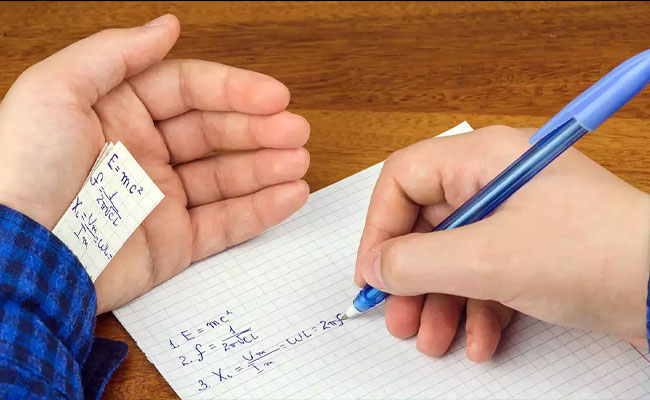 E = mc²
f = 1/2π√CL
X_L = U_m/I_m = ωL =
1. E = mc²
2. f = 1/2π√CL
3. X_L = U_m/I_m = ωL = 2πf